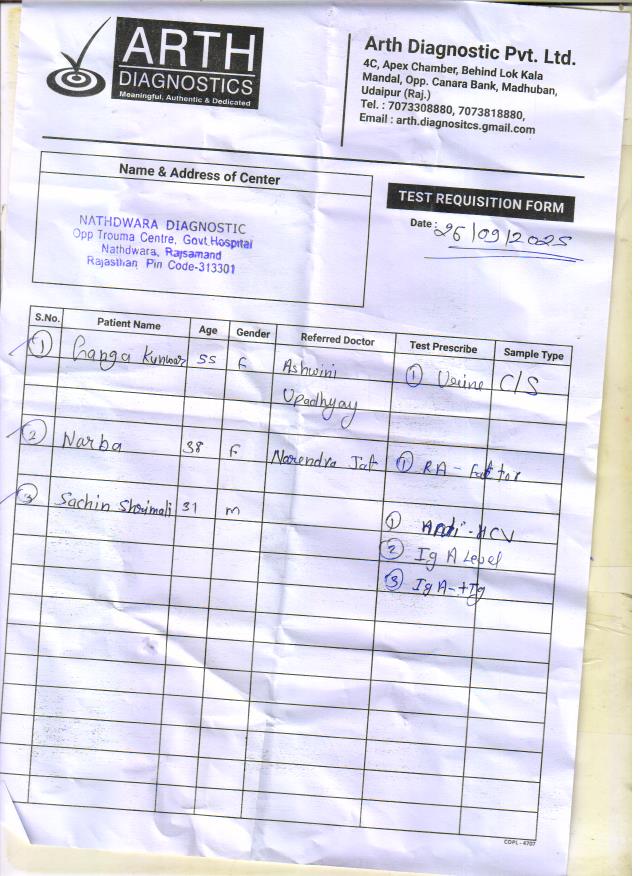 ARTH
DIAGNOSTICS
Meaningful, Authentic & Dedicated
Arth Diagnostic Pvt. Ltd.
4C, Apex Chamber, Behind Lok Kala
Mandal, Opp. Canara Bank, Madhuban,
Udaipur (Raj.)
Tel. : 7073308880, 7073818880,
Email : arth.diagnositcs.gmail.com
Name & Address of Center
NATHDWARA DIAGNOSTIC
Opp Trouma Centre, Govt Hospital
Nathdwara, Rajsamand
Rajasthan Pin Code-313301
TEST REQUISITION FORM
Date : 26/09/2025
S.No. Patient Name Age Gender Referred Doctor Test Prescribe Sample Type
1 Ganga Kunwar 55 F Ashwini 1 Urine C/S
Upadhyay
2 Narba 38 F Narendra Jat 1 RA - Factor
3 Sachin Shrimali 31 m
1 Anti-HCV
2 Ig A Level
3 Ig A-tTg
COPL - 4707